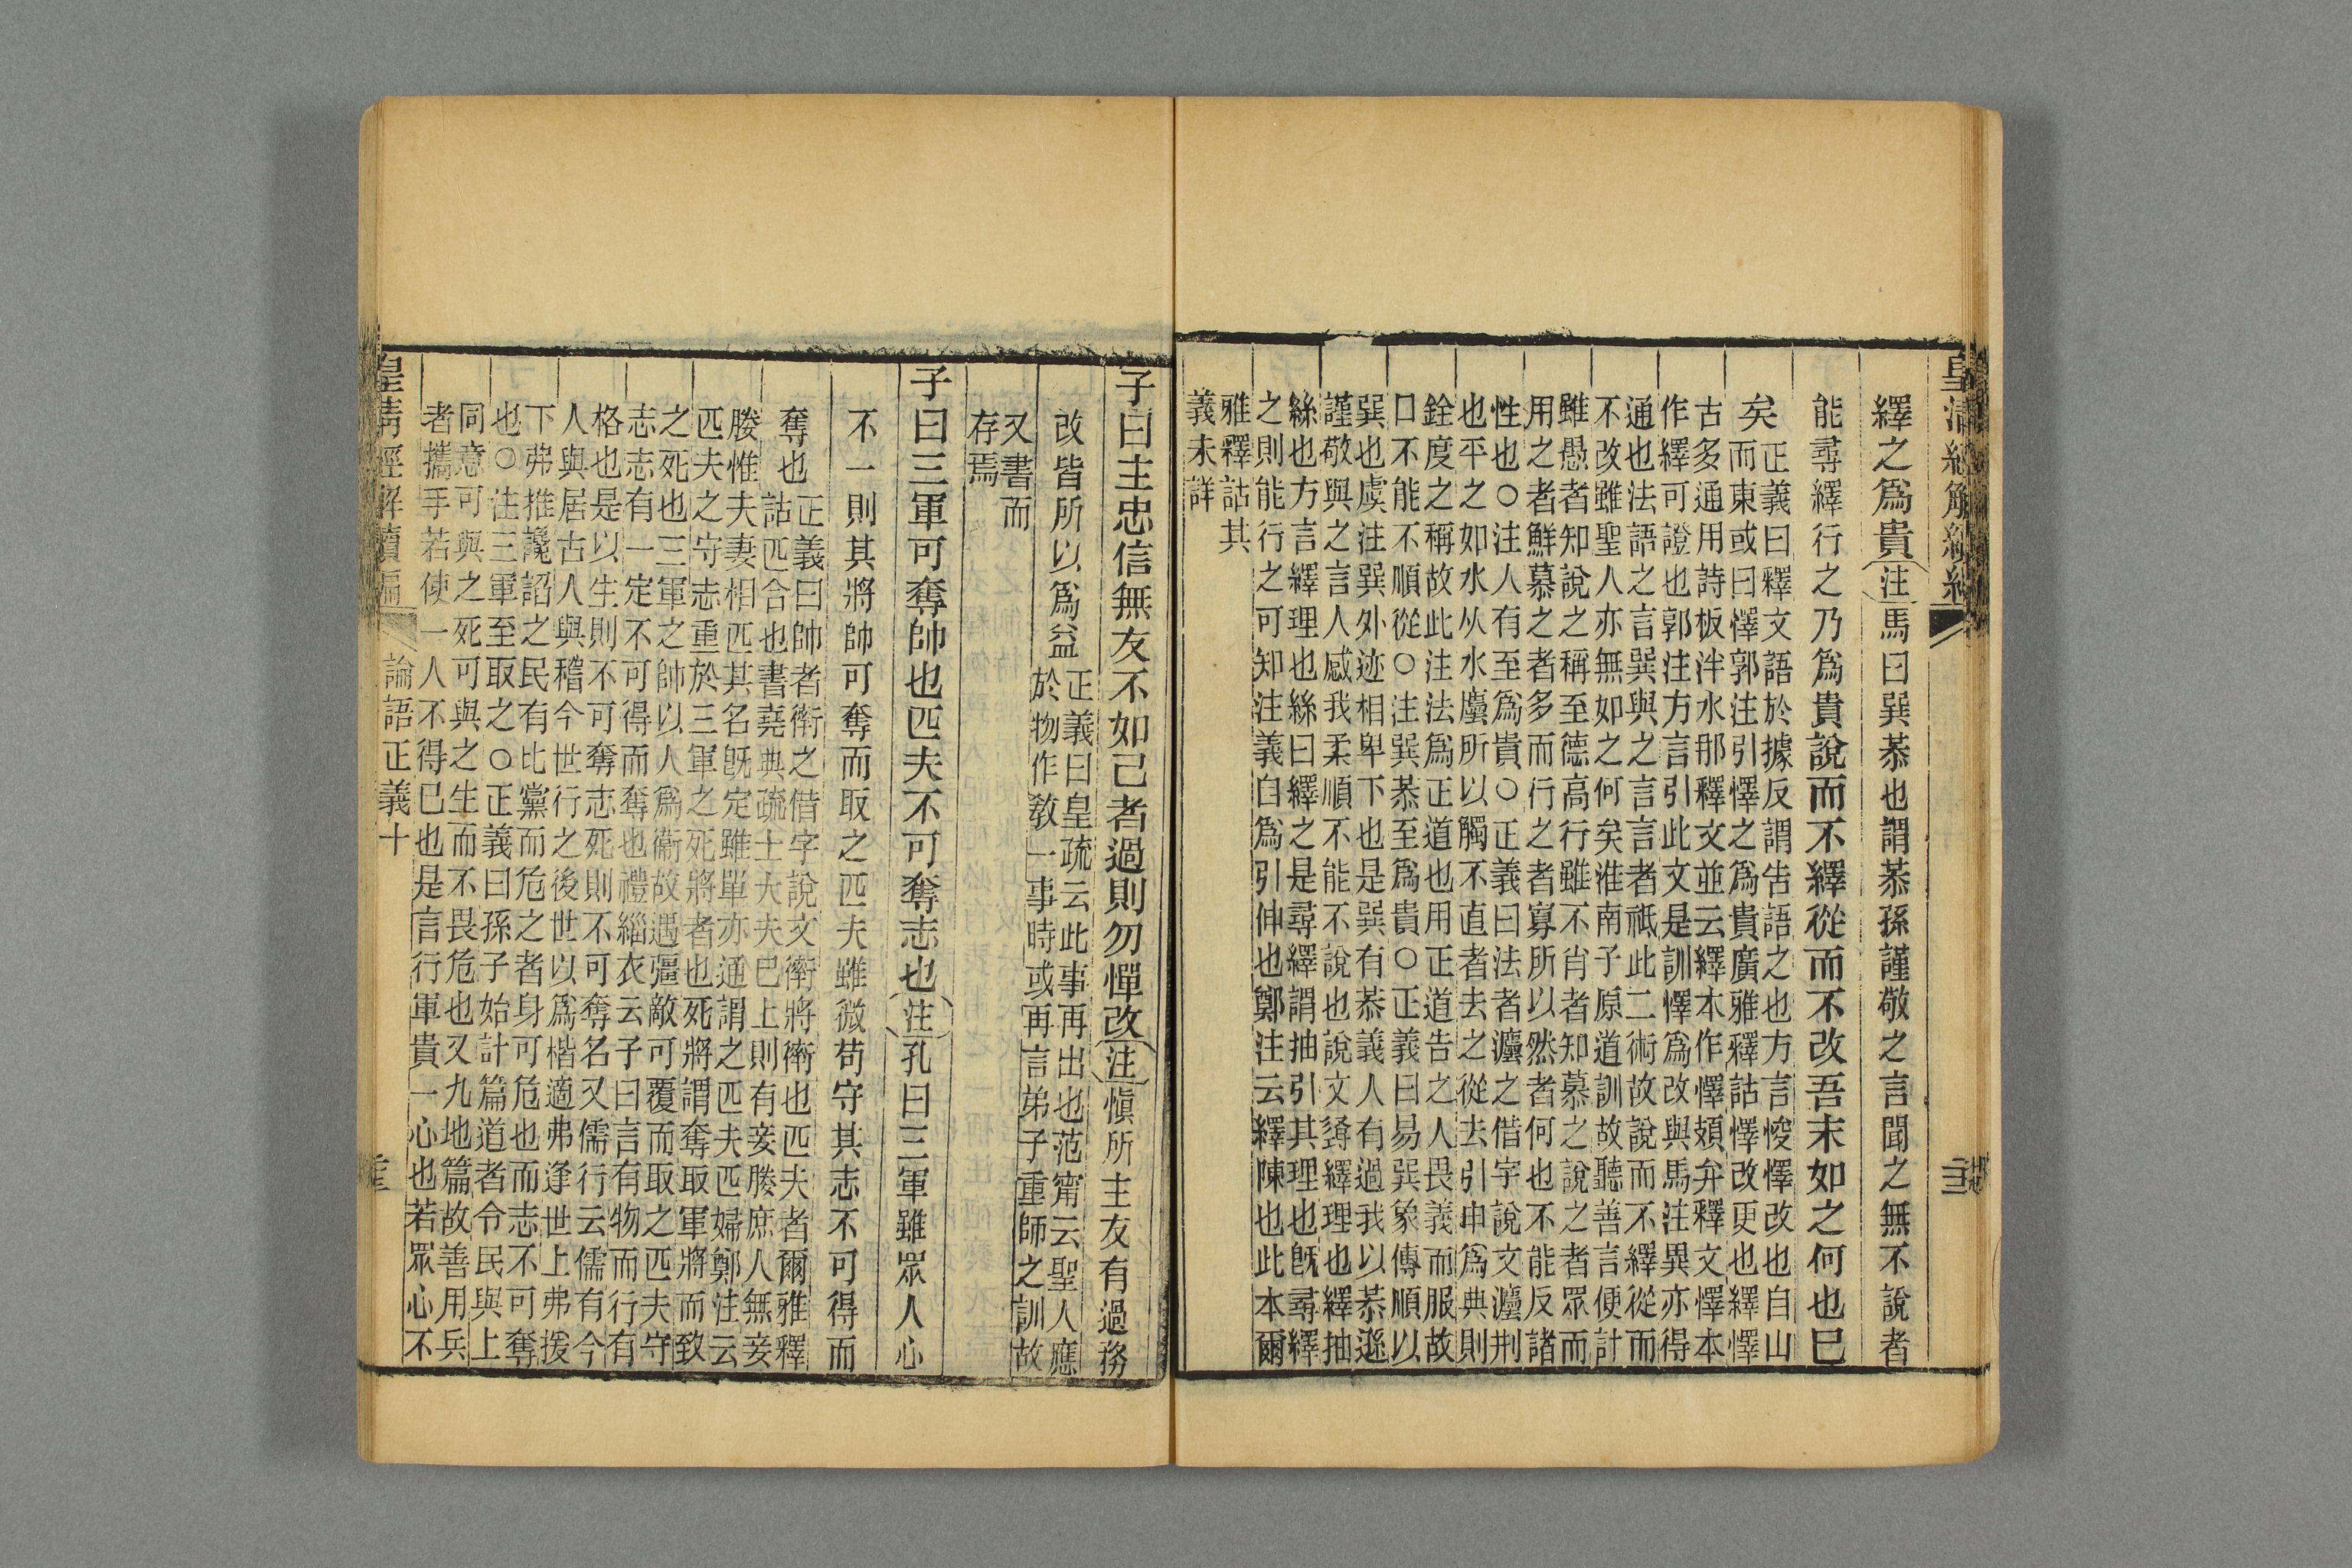 繹之爲貴注馬曰巽恭也謂恭孫謹敬之言聞之無不說者
能尋繹行之乃爲貴說而不繹從而不改吾末如之何也已
矣
正義曰釋文語於據反謂告語之也方言悛懌改也自山
而東或曰懌郭注引懌之爲貴廣雅釋詁懌改更也繹懌
古多通用詩板泮水那釋文並云繹本作懌頍弁釋文懌本
作繹可證也郭注方言引此文是訓懌爲改與馬注異亦得
通也法語之言巽與之言言者祇此二術故說而不繹從而
不改雖聖人亦無如之何矣淮南子原道訓故聽善言便計
雖愚者知說之稱至德高行雖不肖者知慕之說之者眾而
用之者鮮慕之者多而行之者寡所以然者何也不能反諸
性也○注人有至爲貴○正義曰法者灋之借字說文灋荆
也平之如水从水廌所以觸不直者去之從去引申爲典則
銓度之稱故此注法爲正道也用正道告之人畏義而服故
口不能不順從○注巽恭至爲貴○正義曰易巽象傳順以
巽也虞注巽外迹相卑下也是巽有恭義人有過我以恭遜
謹敬與之言人感我柔順不能不說也說文繹理也繹抽
絲也方言繹理也絲曰繹之是尋繹謂抽引其理也旣尋繹
之則能行之可知注義自爲引伸也鄭注云繹陳也此本爾
雅釋詁其
義未詳
子曰主忠信無友不如己者過則勿憚改注愼所主友有過務
改皆所以爲益
正義曰皇疏云此事再出也范甯云聖人應
於物作敎一事時或再言弟子重師之訓故
又書而
存焉
子曰三軍可奪帥也匹夫不可奪志也注孔曰三軍雖眾人心
不一則其將帥可奪而取之匹夫雖微苟守其志不可得而
奪也
正義曰帥者衛之借字說文衛將衛也匹夫者爾雅釋
詁匹合也書堯典疏士大夫已上則有妾媵庶人無妾
媵惟夫妻相匹其名旣定雖單亦通謂之匹夫匹婦鄭注云
匹夫之守志重於三軍之死將者也死將謂奪取軍將而致
之死也三軍之帥以人爲衛故遇彊敵可覆而取之匹夫守
志志有一定不可得而奪也禮緇衣云子曰言有物而行有
格也是以生則不可奪志死則不可奪名又儒行云儒有今
人與居古人與稽今世行之後世以爲楷適弗逢世上弗援
下弗推讒諂之民有比黨而危之者身可危也而志不可奪
也○注三軍至取之○正義曰孫子始計篇道者令民與上
同意可與之死可與之生而不畏危也又九地篇故善用兵
者攜手若使一人不得已也是言行軍貴一心也若眾心不
皇清經解續編
論語正義十